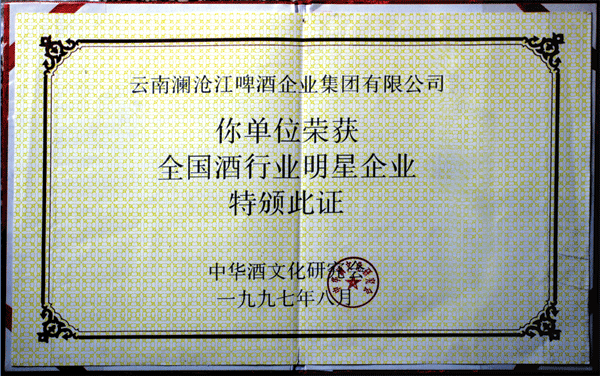 云南澜沧江啤酒企业集团有限公司
你单位荣获
全国酒行业明星企业
特颁此证
中华酒文化研究会
一九九七年八月